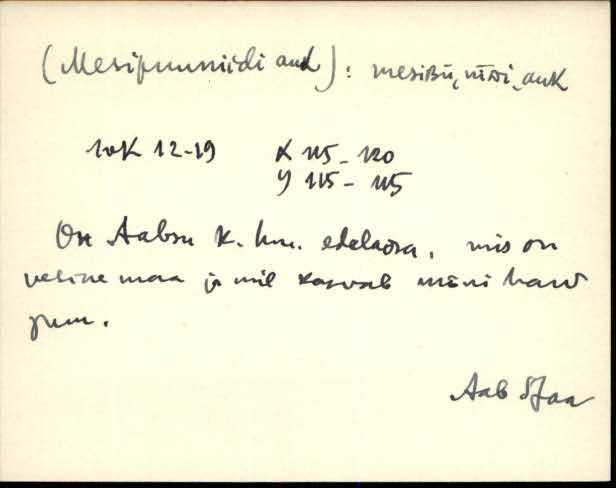 (Mesipuuniidi auk): mesiBū, nīDi, auk
10K 12-19 X 115 - 120
Y 115 - 115
On Aabsu k. hm. edelaosa, mis on
vesine maa ja mil kasvab mēni harv
puu.
Aab